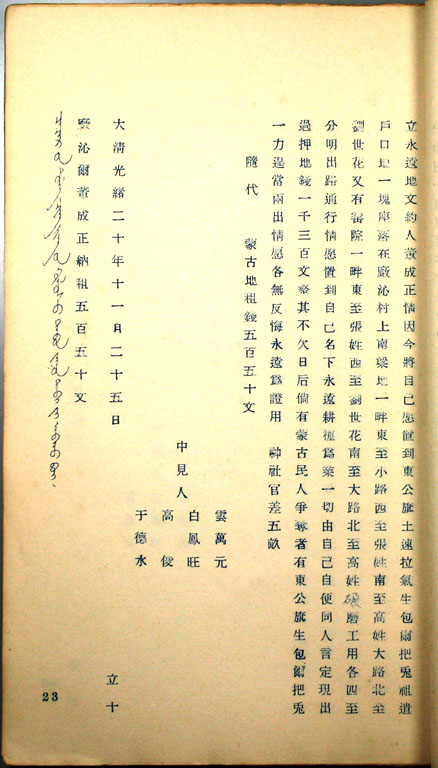 立永遠地文約人董成正情因今將自己愿置到東公旗土速拉氣生包爾把兎祖遺
戶口地一塊座落在廠沁村上南梁地一畔東至小路西至張姓南至高姓大路北至
劉世花又有審院一畔東至張姓西至劉世花南至大路北至高姓碾磨工用各四至
分明出路通行情愿置到自己名下永遠耕種爲業一切由自己自便同人言定現出
過押地錢一千三百文整其不欠日后倘有蒙古民人爭奪者有東公旗生包爾把兎
一力逞當兩出情愿各無反悔永遠爲證用　神社官差五畝
隨代　蒙古地租錢五百五十文
雲萬元
白鳳旺
中見人
高俊
于德水
大清光緒二十年十一月二十五日
立十
廠沁爾董成正納租五百五十文
23